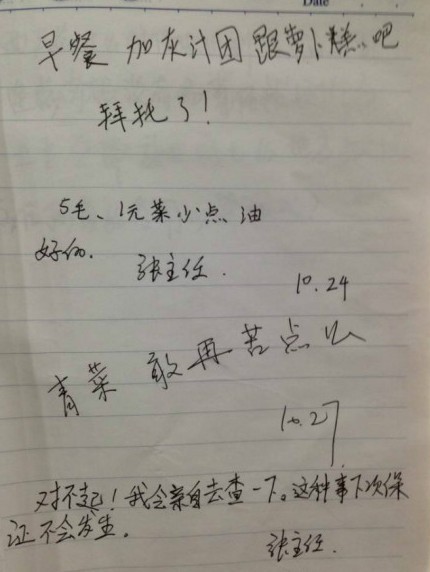 Date
早餐 加灰汁团 跟萝卜糕吧
拜托了！
5毛、1元菜少点油
好的.
张主任.
10.24
青菜 敢再苦点么
10.27
对不起！我会亲自去查一下。这种事下次保
证不会发生.
张主任.